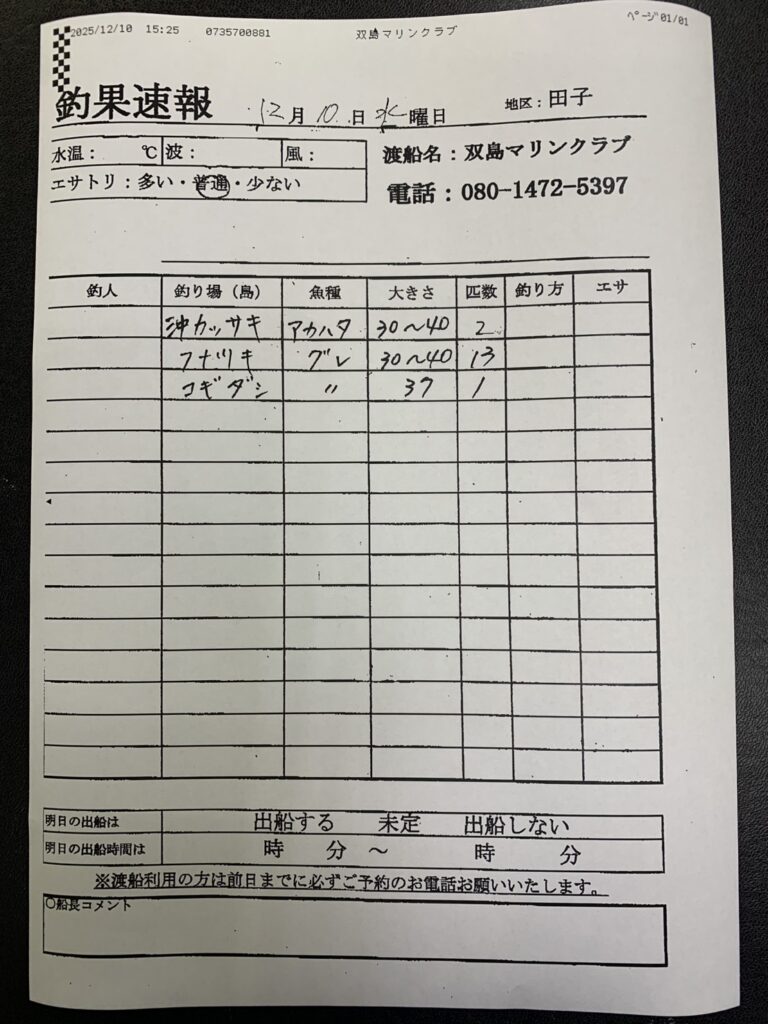 2025/12/10 15:25 0735700881 双島マリンクラブ ページ01/01
釣果速報 12月10日水曜日 地区:田子
水温: ℃ 波: 風:
渡船名:双島マリンクラブ
エサトリ:多い・普通・少ない
電話:080-1472-5397
釣人 釣り場(島) 魚種 大きさ 匹数 釣り方 エサ
沖カッサキ アカハタ 30〜40 2
フナヅキ グレ 30〜40 13
コギダシ 〃 37 1
明日の出船は 出船する 未定 出船しない
明日の出船時間は 時 分 〜 時 分
※渡船利用の方は前日までに必ずご予約のお電話お願いいたします。
○船長コメント